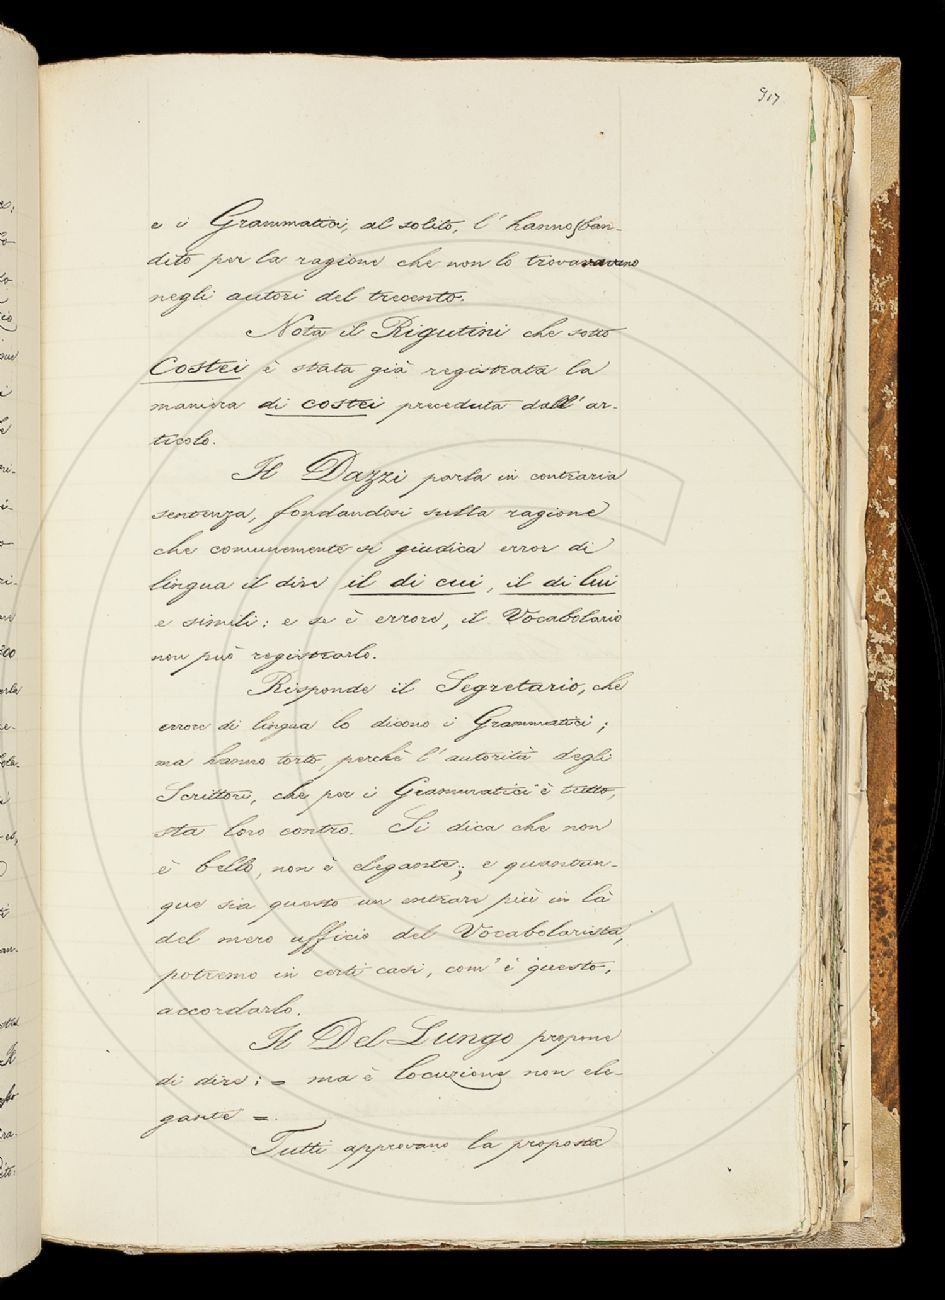 917
e i Grammatici, al solito, l' hanno sban-
dito per la ragione che non lo trovavano
negli autori del trecento.
Nota il Rigutini che sotto
Costei è stata già registrata la
maniera di costei preceduta dall' ar-
ticolo.
Il Dazzi parla in contraria
sentenza, fondandosi sulla ragione
che comunemente si giudica error di
lingua il dire il di cui, il di lui
e simili: e se è errore, il Vocabolario
non può registrarlo.
Risponde il Segretario, che
errore di lingua lo dicono i Grammatici;
ma hanno torto, perchè l' autorità degli
Scrittori, che per i Grammatici è tutto,
sta loro contro. Si dica che non
è bello, non è elegante; e quantun-
que sia questo un entrare più in là
del mero ufficio del Vocabolarista,
potremo in certi casi, com' è questo,
accordarlo.
Il Del Lungo propone
di dire: = ma è locuzione non ele-
gante =.
Tutti approvano la proposta